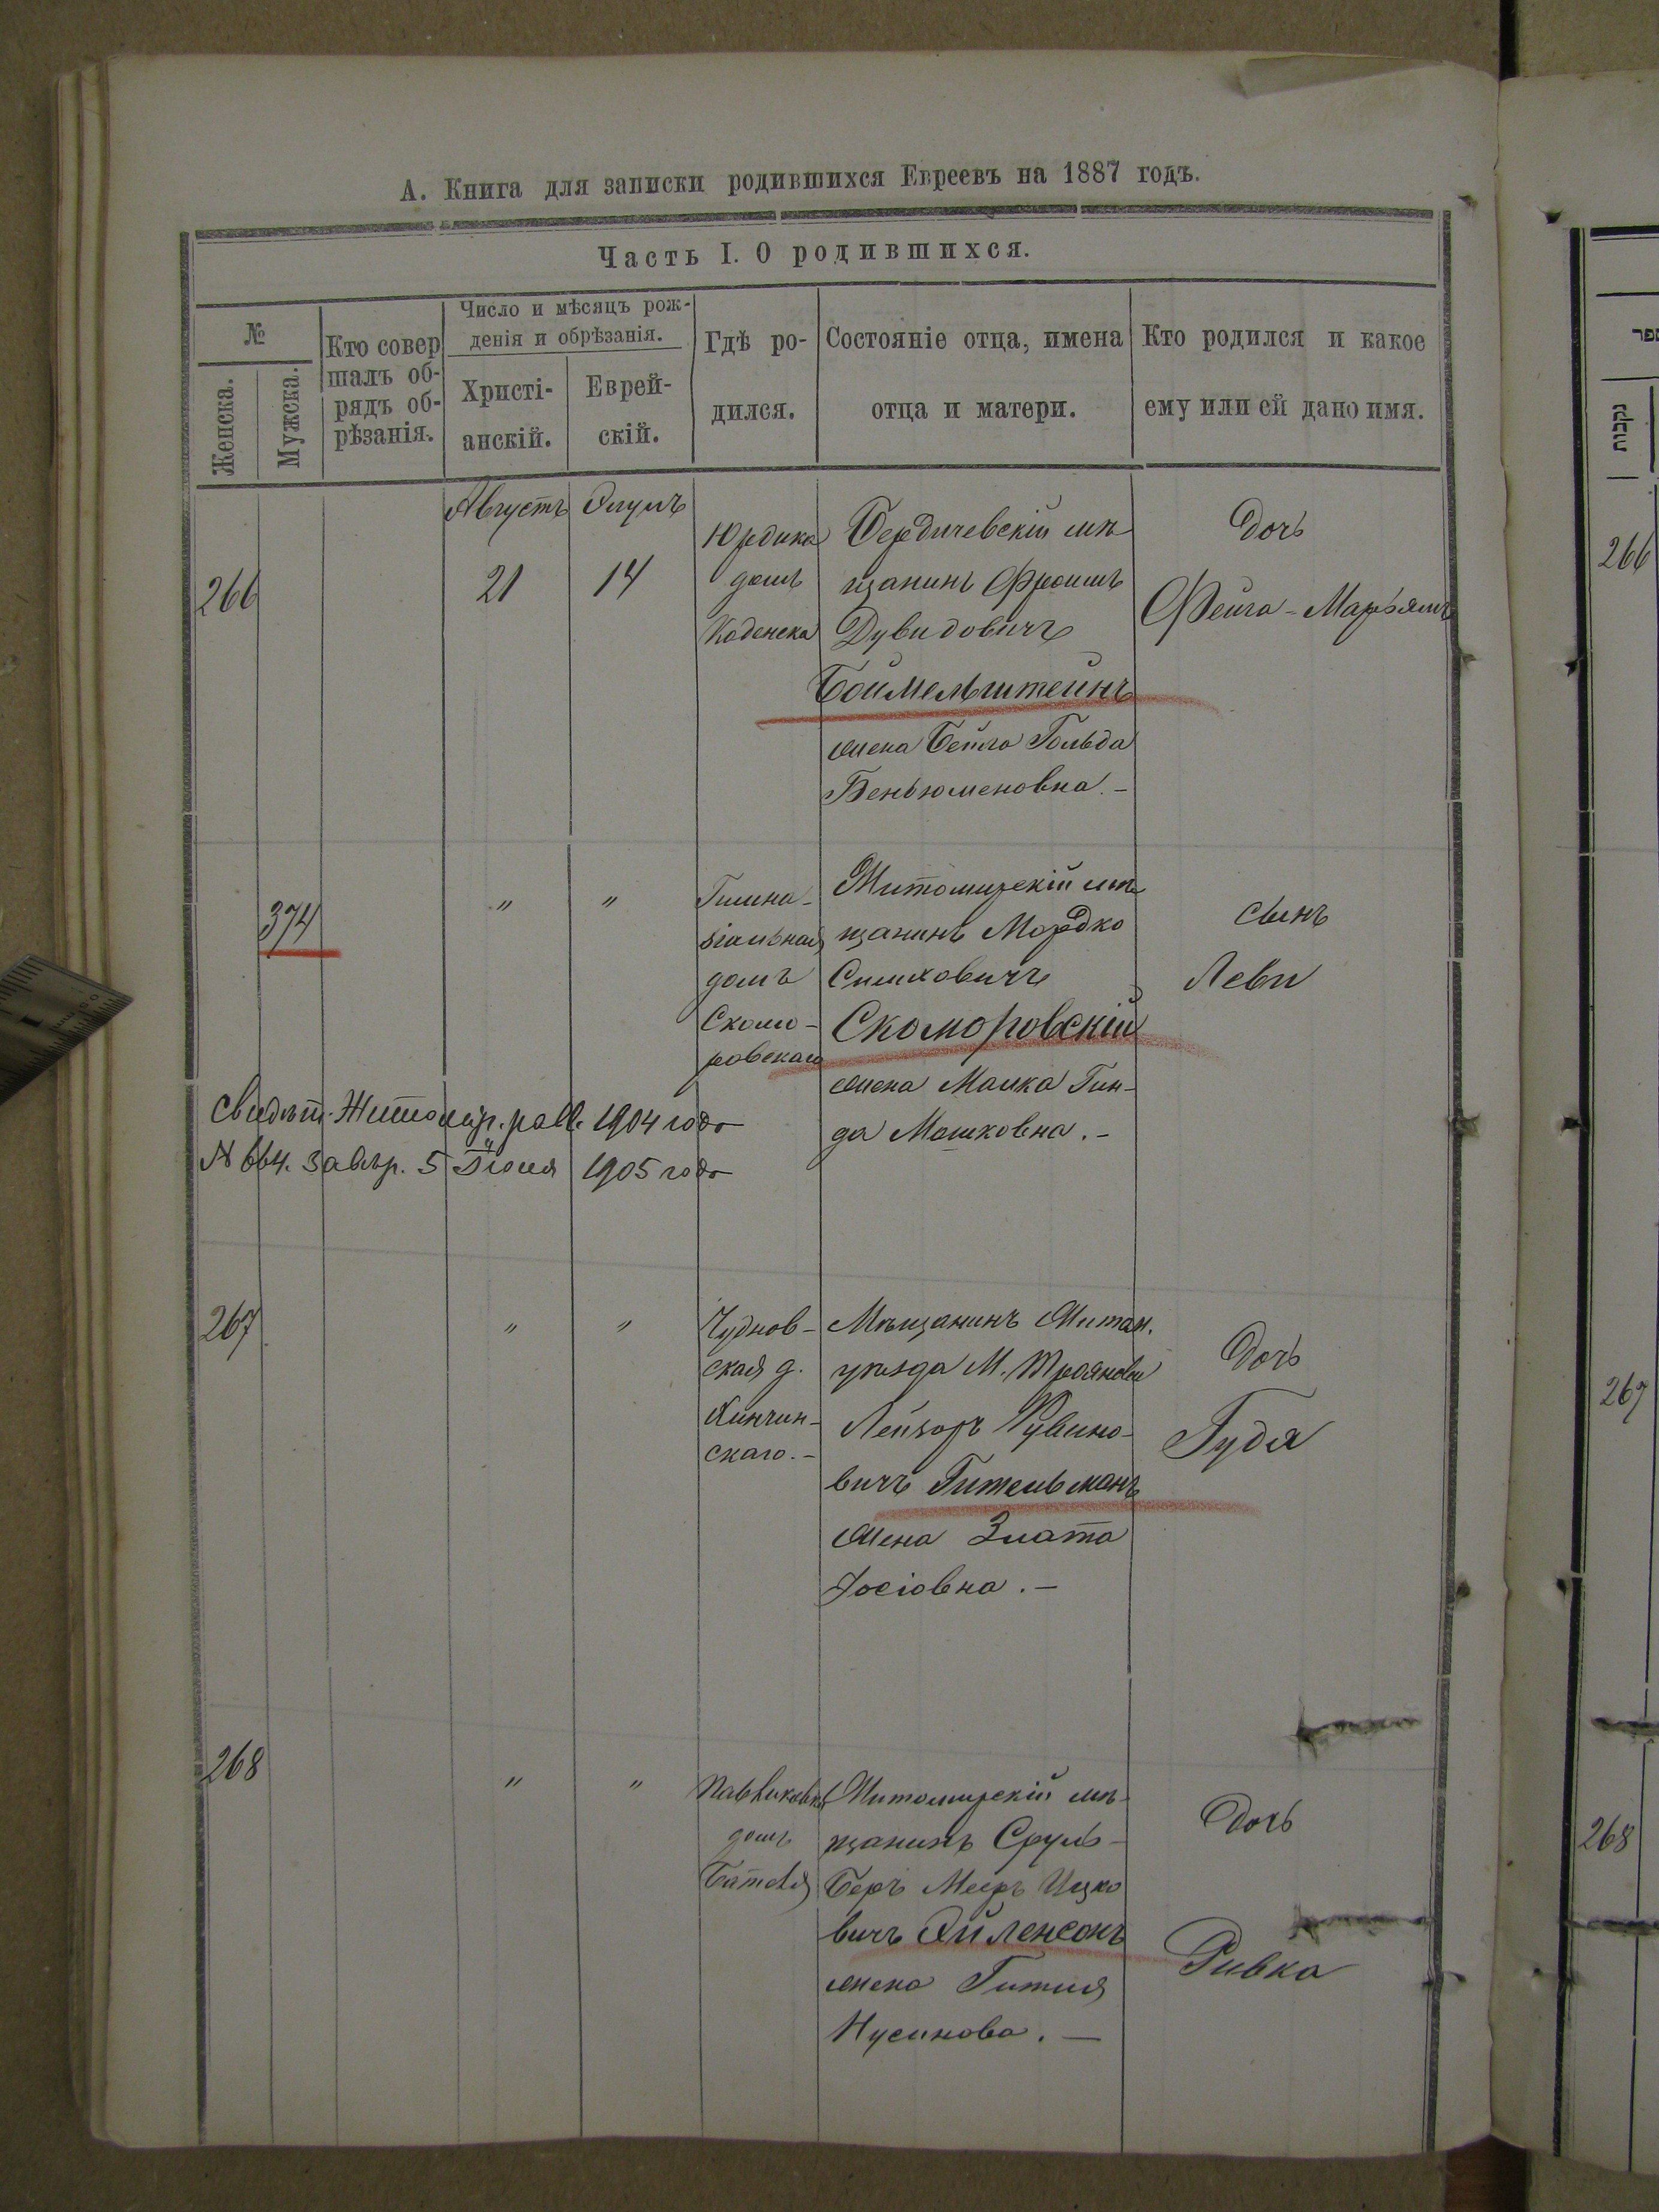 А. Книга для записки родившихся Евреевъ на 1887 годъ.
Часть I. О родившихся.
№
Женска.
Мужска.
Кто совер
шалъ об-
рядъ об-
рѣзанія.
Число и мѣсяцъ рож-
денія и обрѣзанія.
Христі-
анскій.
Еврей-
скій.
Гдѣ ро-
дился.
Состояніе отца, имена
отца и матери.
Кто родился и какое
ему или ей дано имя.
266
Августъ
21
Элулъ
14
Юрдика
домъ
Каденска
Бердичевскій мѣ-
щанинъ Фроимъ
Дувидовичъ
Боймельштейнъ
жена Бейла Гольда
Беньюменовна. -
Дочь
Фейга-Марьямъ
374
"
"
Гимна-
зіальная
домъ
Скомо-
ровскаго
Житомирскій мѣ-
щанинъ Мордко
Симховичъ
Скоморовскій
жена Малка Гин-
да Мошковна. -
сынъ
Леви
Свидѣт. Житомір. равв. 1904 года
№ 664. завѣр. 5 Іюля 1905 года
267
"
"
Чуднов-
ская д.
Хинчин-
скаго. -
Мѣщанинъ Житом.
уѣзда М. Троянова
Лейзоръ Рувино-
вичъ Гительманъ
жена Злата
Іосіовна. -
Дочь
Гудя
268
"
"
Павликовка
домъ
Житомирскій мѣ-
щанинъ Сруль-
Беръ Меиръ Ицко
вичъ Эйленсонъ
жена Гитля
Нусинова. -
Дочь
Ривка
266
267
268
נקבות